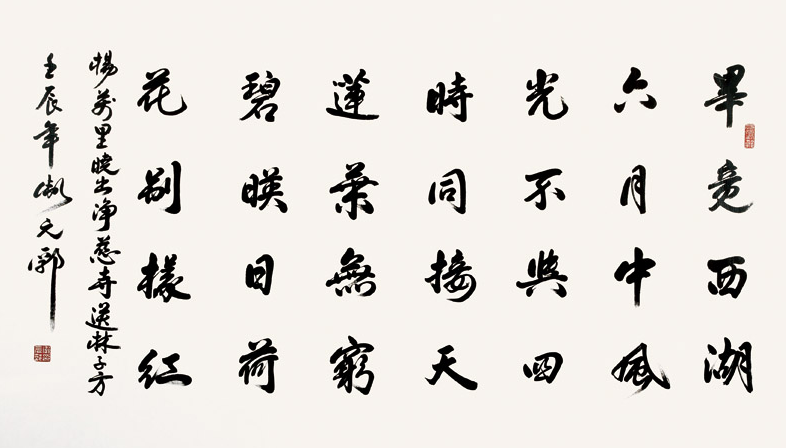 畢竟西湖
六月中風
光不與四
時同接天
蓮葉無窮
碧暎日荷
花別樣紅
楊萬里曉出净慈寺送林子方
壬辰年